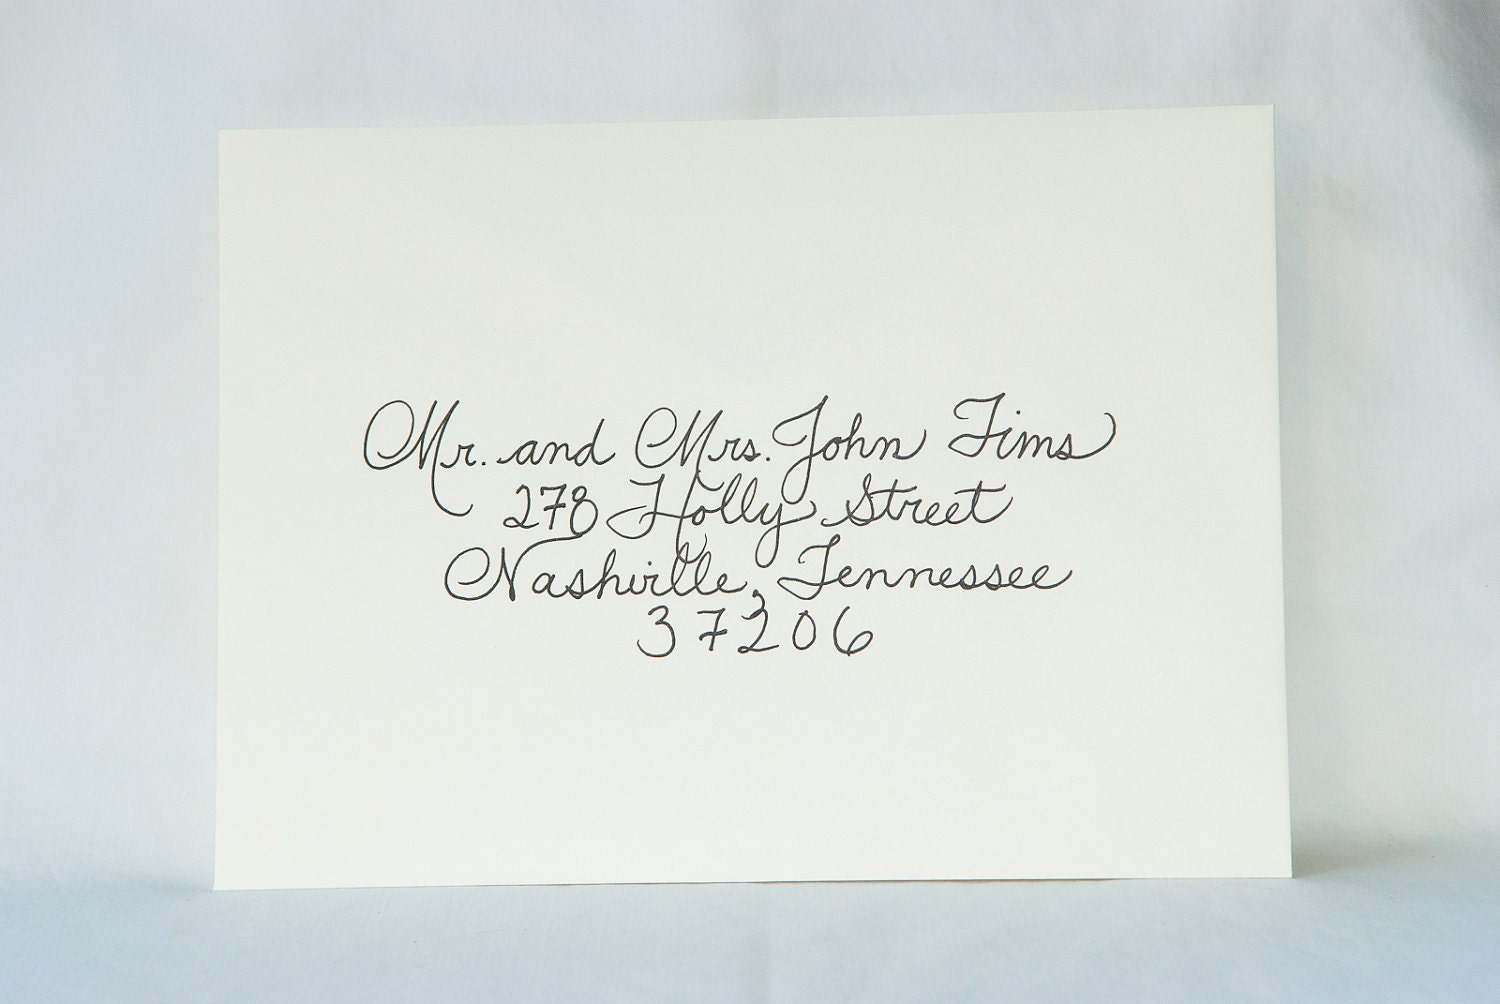 Mr. and Mrs. John
278 Holly Street
Nashville, Tennessee
37206